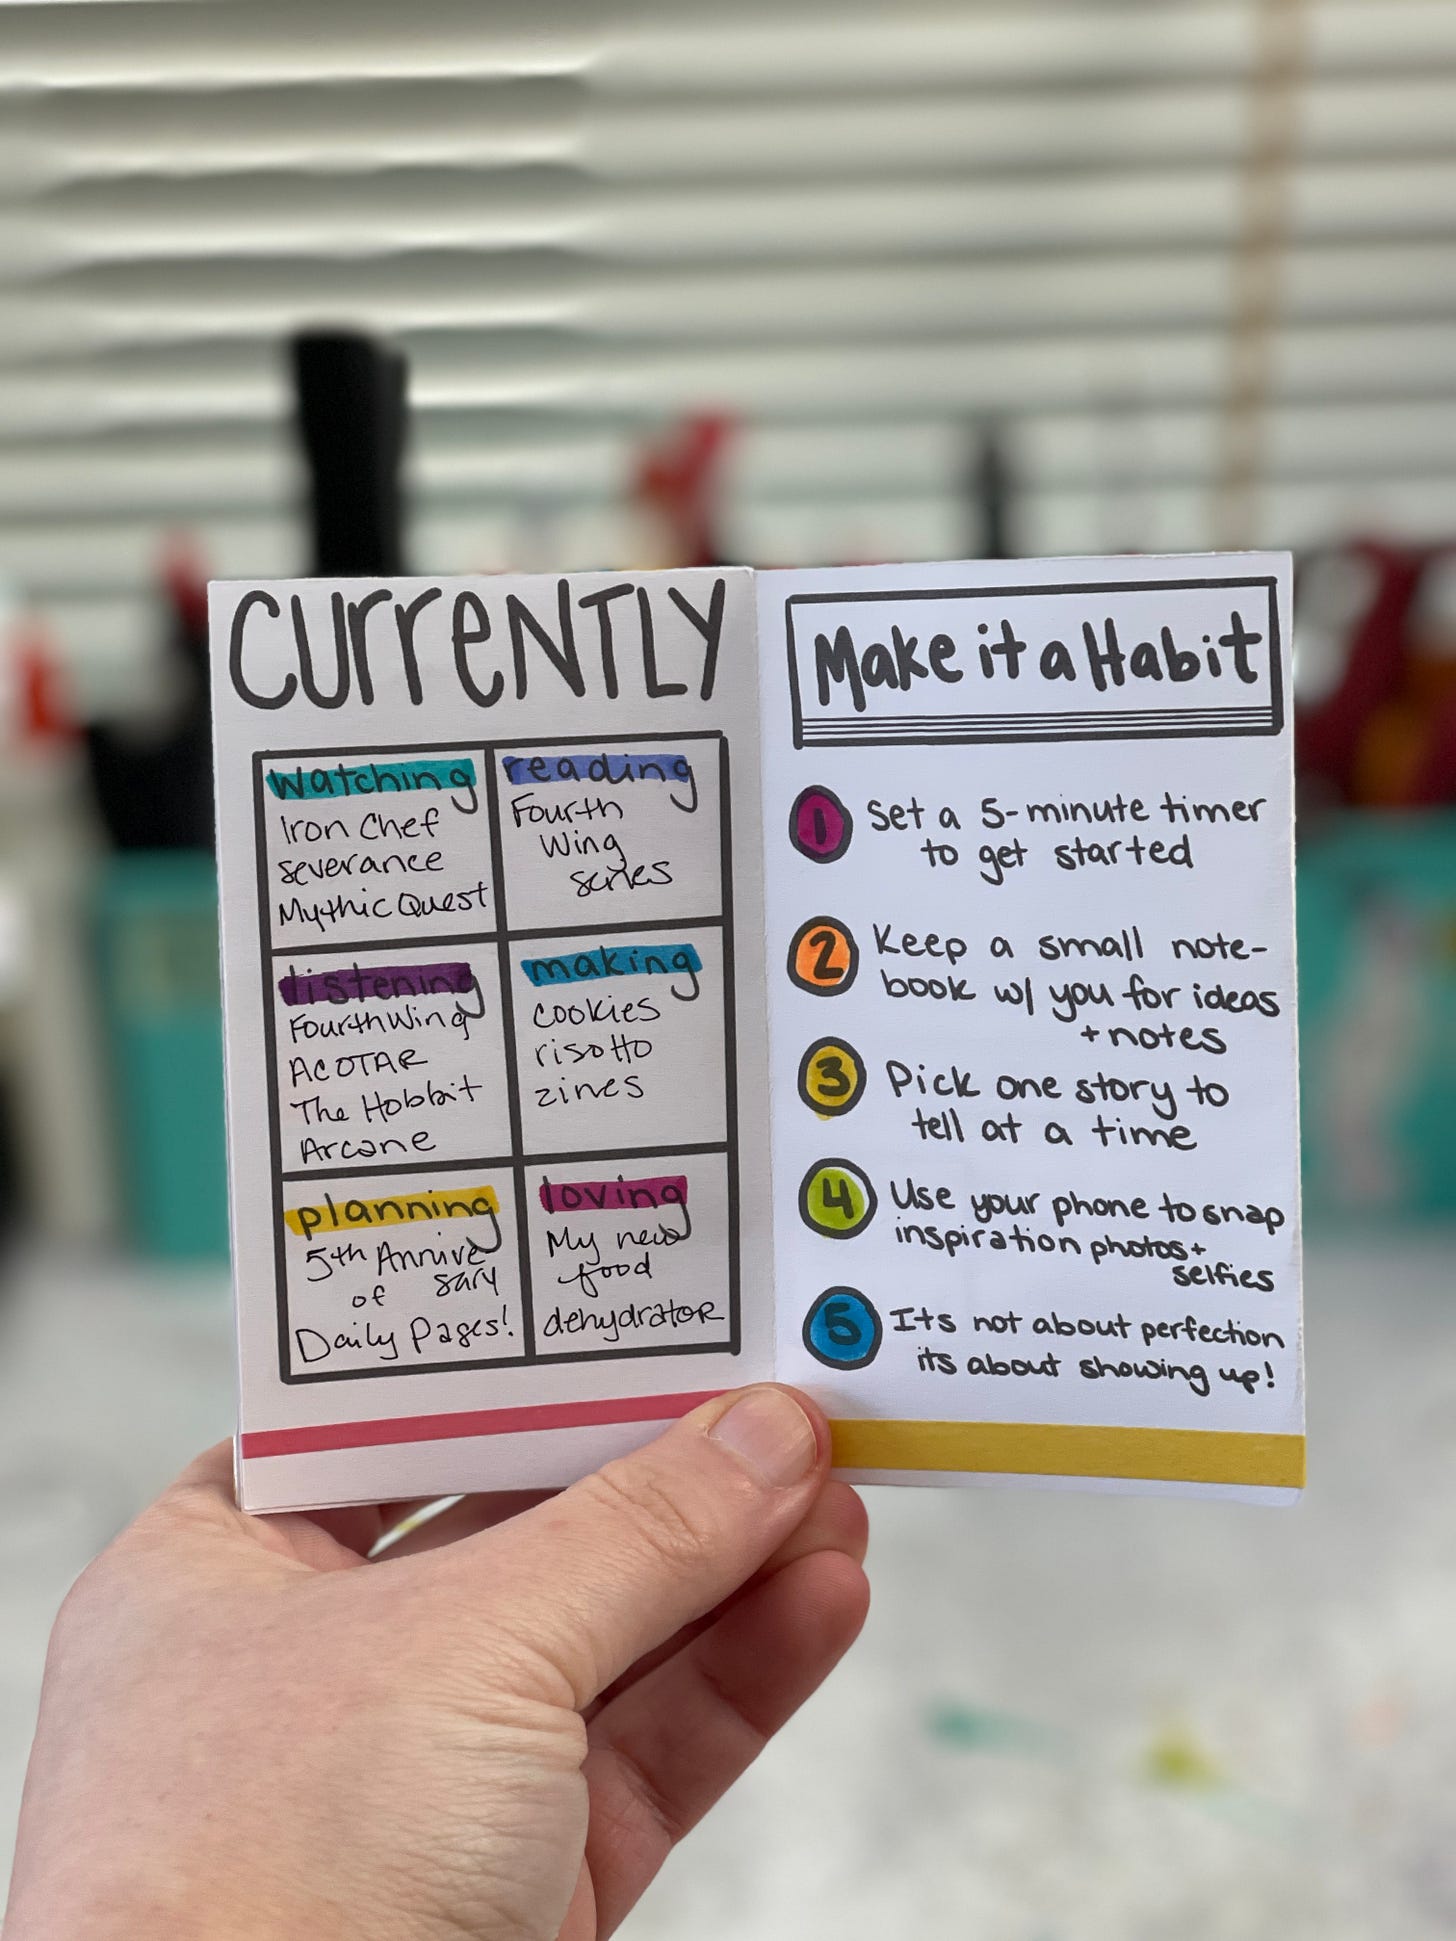 CURReNTLY
watching
Iron Chef
severance
Mythic Quest
reading
Fourth
Wing
series
listening
FourthWing
ACOTAR
The Hobbit
Arcane
making
cookies
risotto
zines
planning
5th Annive
sary
of
Daily Pages!
loving
My new
food
dehydrator
Make it a Habit
1 Set a 5-minute timer
to get started
2 Keep a small note-
book w/ you for ideas
+ notes
3 Pick one story to
tell at a time
4 Use your phone to snap
inspiration photos +
selfies
5 Its not about perfection
its about showing up!